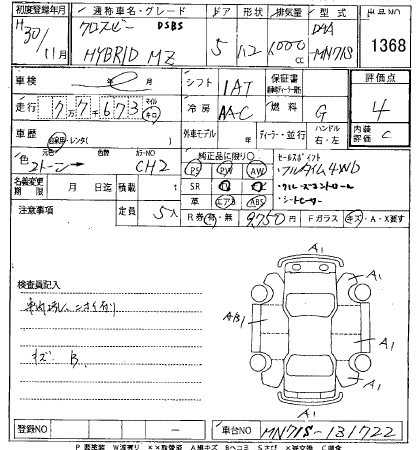 初度登録年月 通称車名・グレード ドア 形状 排気量 型式 出品NO
H30/11月 クロスビー DSBS HYBRID MZ 5 1000cc DAA MN71S 1368
車検 年 月 シフト IAT 保証書 評価点
走行 7万7千673 マイル キロ 冷房 AAC 燃料 G 4
車歴 自家用・レンタ( ) 外車モデル 年 ディーラー・並行 ハンドル 右・左 内装評価 C
色 元色 2トーン 色替 カラーNO CH2 純正品に限り○ セールスポイント
PS PW AW フルタイム4WD
名義変更期限 月 日迄 積載 t SR クルーズコントロール
革 エアB ABS シートヒーター
注意事項 定員 5人 R券 有・無 9,750円 Fガラス キズ・A・X要す
検査員記入
キズ B.
A1
A1
A1
AB1
A1
A1
A1
登録NO 車台NO MN71S-131722